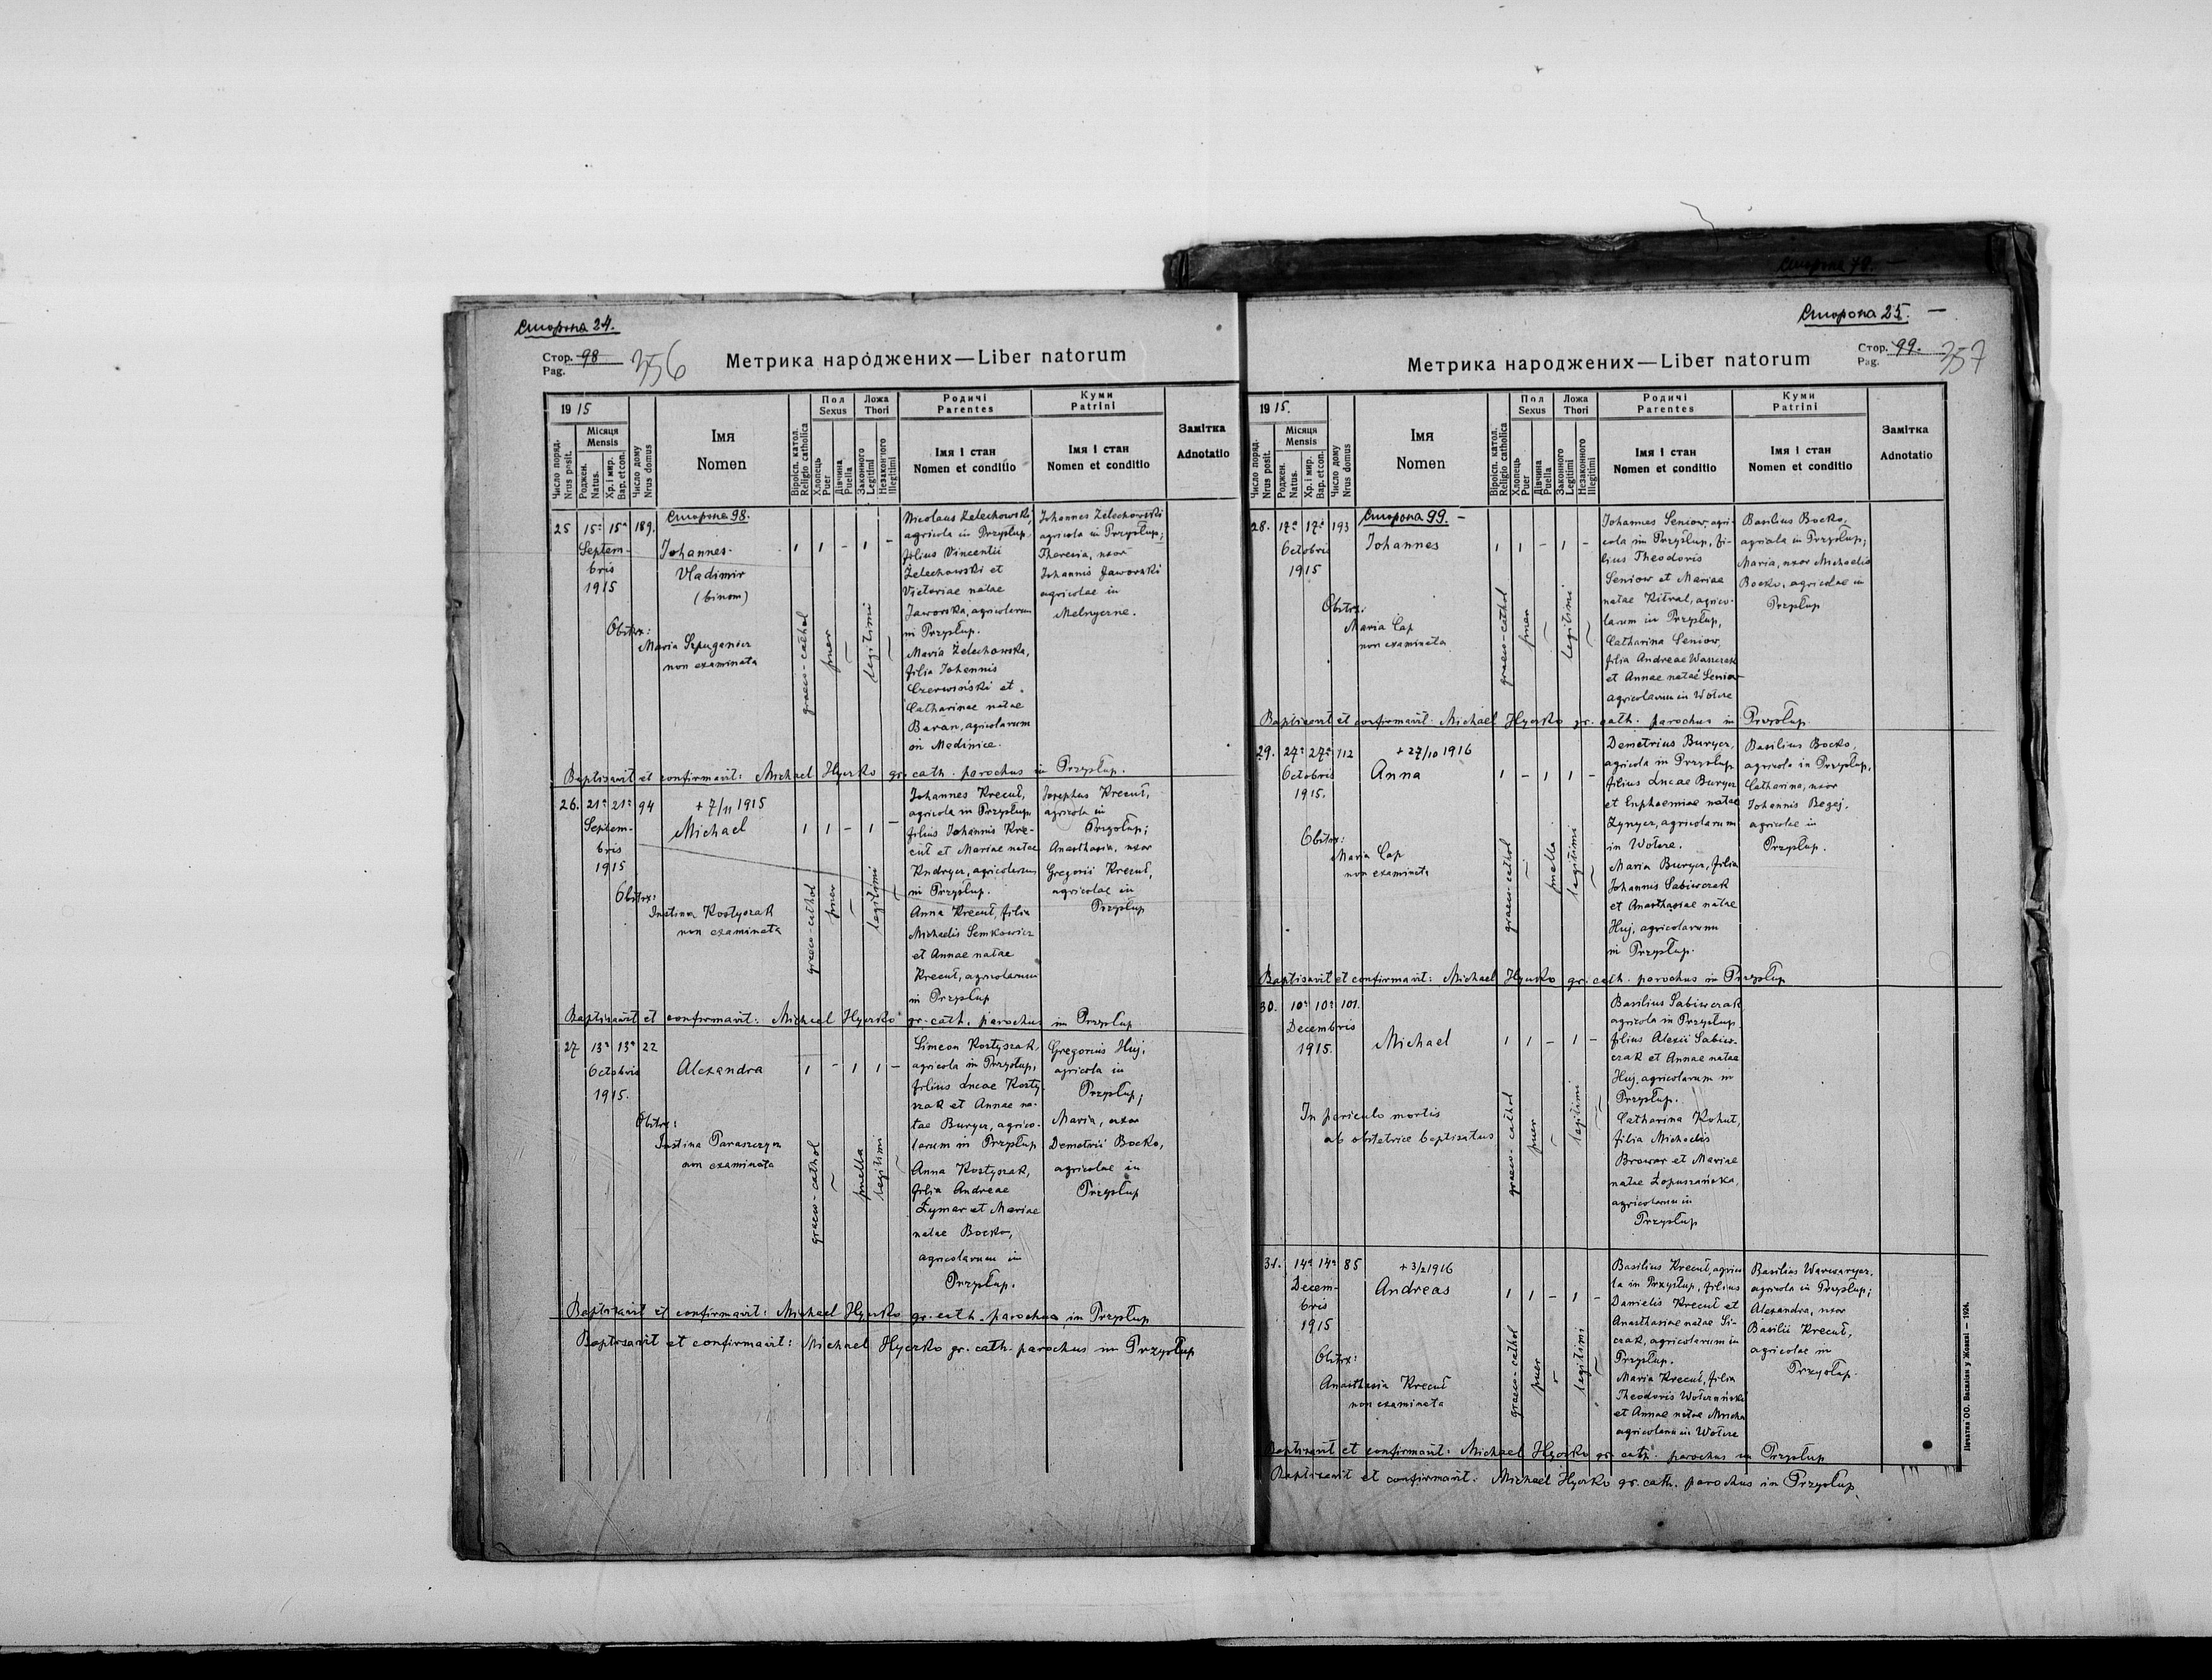 Сторона 24.
Стор. 98
Pag.
356
Метрика народжених—Liber natorum
1915
Число поряд.
Nrus posit.
Місяця
Mensis
Роджен.
Natus.
Хр. і мир.
Bap. et con.
Число дому
Nrus domus
Імя
Nomen
Віроісп. катол.
Religio catholica
Пол
Sexus
Хлопець
Puer
Дівчина
Puella
Ложа
Thori
Законного
Legitimi
Незаконного
Illegitimi
Родичі
Parentes
Імя і стан
Nomen et conditio
Куми
Patrini
Імя і стан
Nomen et conditio
Замітка
Adnotatio
Сторона 98.
25 15ª 15ª 189.
Septem-
bris
1915
Johannes-
Vladimir
(binom)
Obstrx:
Maria
non examinata
graeco-cathol
puer
legitimi
Nicolaus Żelechowski,
agricola in Przysłup,
filius Vincentii
Żelechowski et
Victoriae natae
Jaworska, agricolarum
in Przysłup.
Maria Żelechowska,
filia Johannis
Czerwiński et
Catharinae natae
Baran, agricolarum
in Medinice.
Johannes Żelechowski
agricola in Przysłup;
Theresia, uxor
Johannis Jaworski
agricolae in
Melnyczne.
Baptisavit et confirmavit: Michael Hycko gr. cath. parochus in Przysłup.
26. 21ª 21ª 94
Septem-
bris
1915
+ 7/11 1915
Michael
Obstrx:
Justina Kostyszak
non examinata
graeco-cathol
puer
legitimi
Johannes Krecuł,
agricola in Przysłup,
filius Johannis Kre-
cuł et Mariae natae
Kndrycz, agricolarum
in Przysłup.
Anna Krecuł, filia
Michaelis Semkowicz
et Annae natae
Krecuł, agricolarum
in Przysłup
Josephus Krecuł,
agricola in
Przysłup;
Anasthasia, uxor
Gregorii Krecuł,
agricolae in
Przysłup
Baptisavit et confirmavit: Michael Hycko gr. cath. parochus in Przysłup
27 13ª 13ª 22
Octobris
1915.
Alexandra
Obstrx:
Justina Paraszczyn
non examinata
graeco-cathol
puella
legitimi
Simeon Kostyszak,
agricola in Przysłup,
filius Lucae Kosty-
szak et Annae na-
tae Burycz, agrico-
larum in Przysłup
Anna Kostyszak,
filia Andreae
Zymar et Mariae
natae Bocko,
agricolarum in
Przysłup.
Gregorius Huj,
agricola in
Przysłup;
Maria, uxor
Demetrii Bocko,
agricolae in
Przysłup
Baptisavit et confirmavit: Michael Hycko gr. cath. parochus in Przysłup
Baptisavit et confirmavit: Michael Hycko gr. cath. parochus in Przysłup
Сторона 25.
Стор. 99.
Pag.
357
Метрика народжених—Liber natorum
1915.
Число поряд.
Nrus posit.
Місяця
Mensis
Роджен.
Natus.
Хр. і мир.
Bap. et con.
Число дому
Nrus domus
Імя
Nomen
Віроісп. катол.
Religio catholica
Пол
Sexus
Хлопець
Puer
Дівчина
Puella
Ложа
Thori
Законного
Legitimi
Незаконного
Illegitimi
Родичі
Parentes
Імя і стан
Nomen et conditio
Куми
Patrini
Імя і стан
Nomen et conditio
Замітка
Adnotatio
Сторона 99.
28. 17ª 17ª 193
Octobris
1915
Johannes
Obstrx:
Maria Cap
non examinata
graeco-cathol
puer
legitimi
Johannes Seniow, agri-
cola in Przysłup, fi-
lius Theodoris
Seniow et Mariae
natae Kitral, agrico-
larum in Przysłup,
Catharina Seniow,
filia Andreae Waszczak
et Annae natae Seniow
agricolarum in Wołcze
Basilius Bocko,
agricola in Przysłup;
Maria, uxor Michaelis
Bocko, agricolae in
Przysłup
Baptisavit et confirmavit: Michael Hycko gr. cath. parochus in Przysłup
29. 27ª 27ª 112
Octobris
1915.
+ 27/10 1916
Anna
Obstrx:
Maria Cap
non examinata
graeco-cathol
puella
legitimi
Demetrius Burycz,
agricola in Przysłup
filius Lucae Burycz
et Euphaemiae natae
Zynycz, agricolarum
in Wołcze.
Maria Burycz, filia
Johannis Sabiwczak
et Anasthasiae natae
Huj, agricolarum
in Przysłup.
Basilius Bocko,
agricola in Przysłup,
Catharina, uxor
Johannis Begej,
agricolae in
Przysłup.
Baptisavit et confirmavit: Michael Hycko gr. cath. parochus in Przysłup
30. 10ª 10ª 101.
Decembris
1915.
Michael
In periculo mortis
ab obstetrice baptisatus
graeco-cathol
puer
legitimi
Basilius Sabiwczak
agricola in Przysłup
filius Alexii Sabiw-
czak et Annae natae
Huj, agricolarum in
Przysłup.
Catharina Kohut,
filia Michaelis
Browar et Mariae
natae Łopuszańska,
agricolarum in
Przysłup
31. 14ª 14ª 85
Decem-
bris
1915
+ 3/2 1916
Andreas
Obstrx:
Anasthasia Krecuł
non examinata
graeco-cathol
puer
legitimi
Basilius Krecuł, agrico-
la in Przysłup, filius
Danielis Krecuł et
Anasthasiae natae Si-
czak, agricolarum in
Przysłup.
Maria Krecuł, filia
Theodoris Wołczański
et Annae natae Mucha
agricolarum in Wołcze
Basilius Warwarycz,
agricola in Przysłup;
Alexandra, uxor
Basilii Krecuł,
agricolae in
Przysłup.
Baptisavit et confirmavit: Michael Hycko gr. cath. parochus in Przysłup
Baptisavit et confirmavit: Michael Hycko gr. cath. parochus in Przysłup
Печатня ОО. Василіян у Жовкві — 1924.